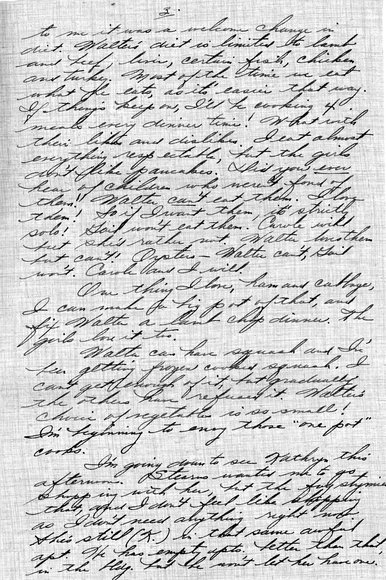 3.
to me it was a welcome change in
diet. Walter's diet is limited to lamb
and beef, liver, certain fish, chicken
and turkey. Most of the time we eat
what he eats, as its easier that way.
If things keep on, I'll be cooking 4
meals every dinner time! What with
their likes and dislikes. I eat almost
everything respectable, but the girls
don't like pancakes. Did you ever
hear of children who weren't fond of
them! Walter can't eat them. I love
them! So if I want them, its strictly
solo! Gail won't eat them. Carole will
but she'd rather not, Walter loves them
but can't! Oysters - Walter can't, Gail
won't. Carole and I will.
One thing I love, ham and cabbage,
I can make a big pot of that, and
fix Walter a lamb chop dinner. The
girls love it too.
Walter can have squash and I've
been getting frozen cooked squash. I
can't get enough of it, but gradually
the others have refused it. Walter's
choice of vegetables is so small!
I'm beginning to envy those "one pot"
cooks.
I'm going down to see Kathryn this
afternoon. Stearns wanted me to go
shopping with her, but the fog stymied
that, and I don't feel like shopping
as I don't need anything right now
She's still (K) in that same awful
apt. He has empty apts. better than that
in the bldg. but he won't let her have one.